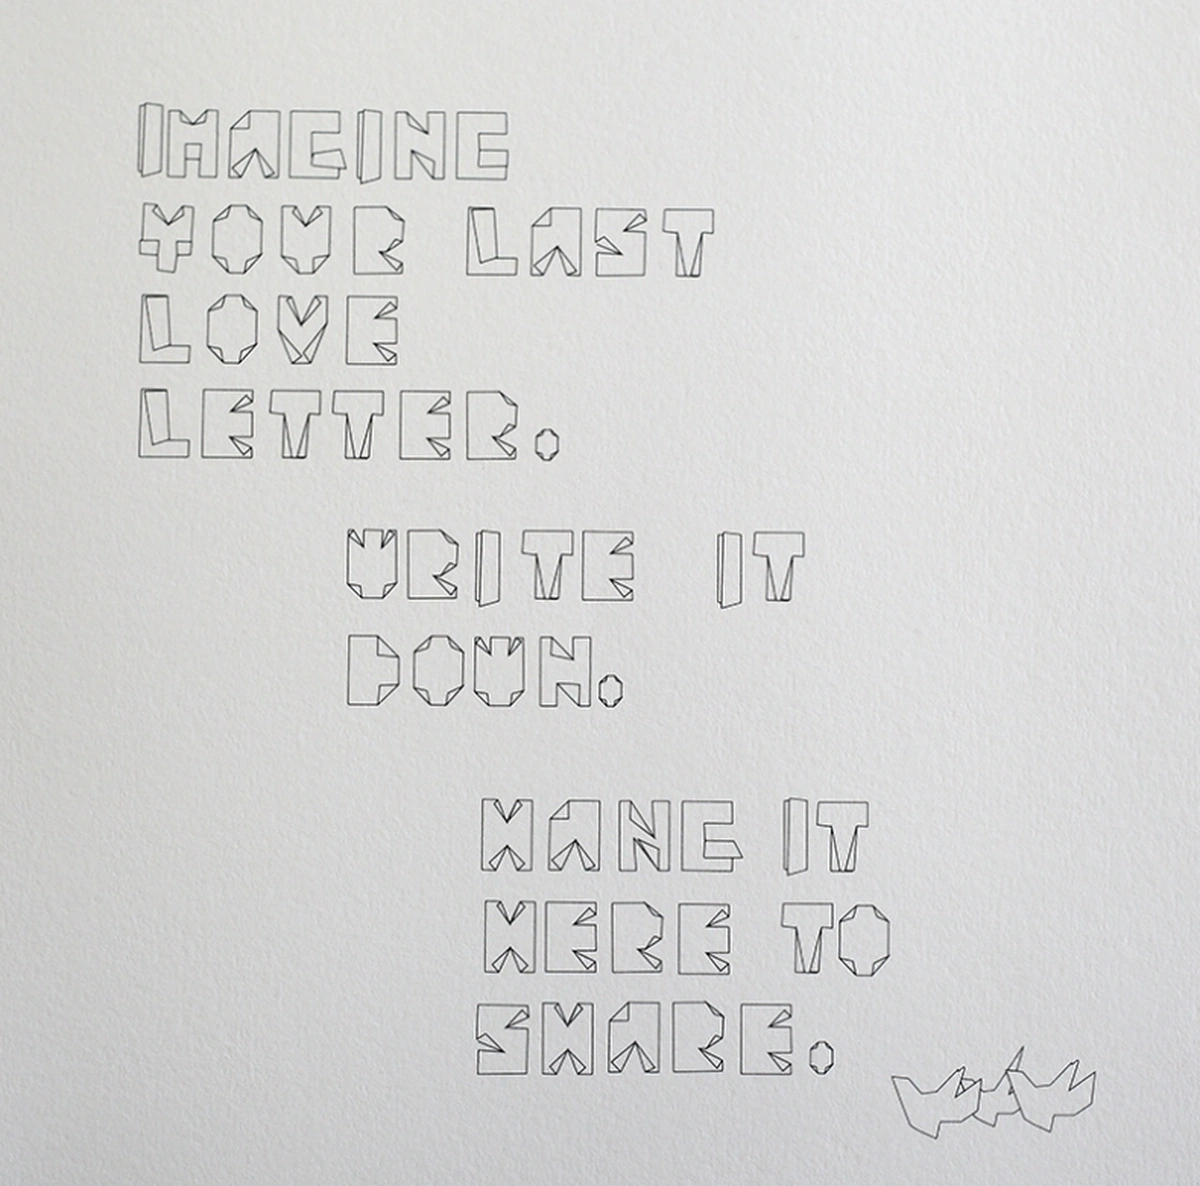 IMAGINE
YOUR LAST
LOVE
LETTER.
WRITE IT
DOWN.
HANG IT
HERE TO
SHARE.